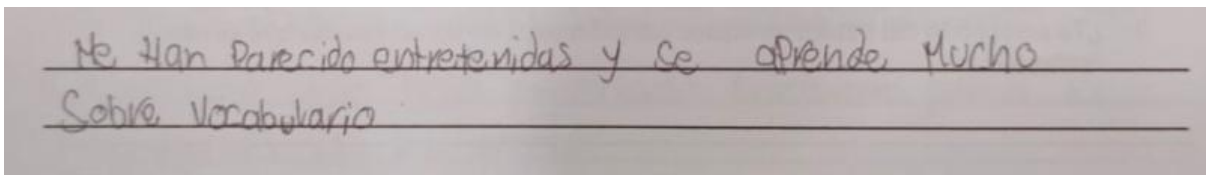 Me Han Parecido entretenidas y Se aprende Mucho
Sobre Vocabulario